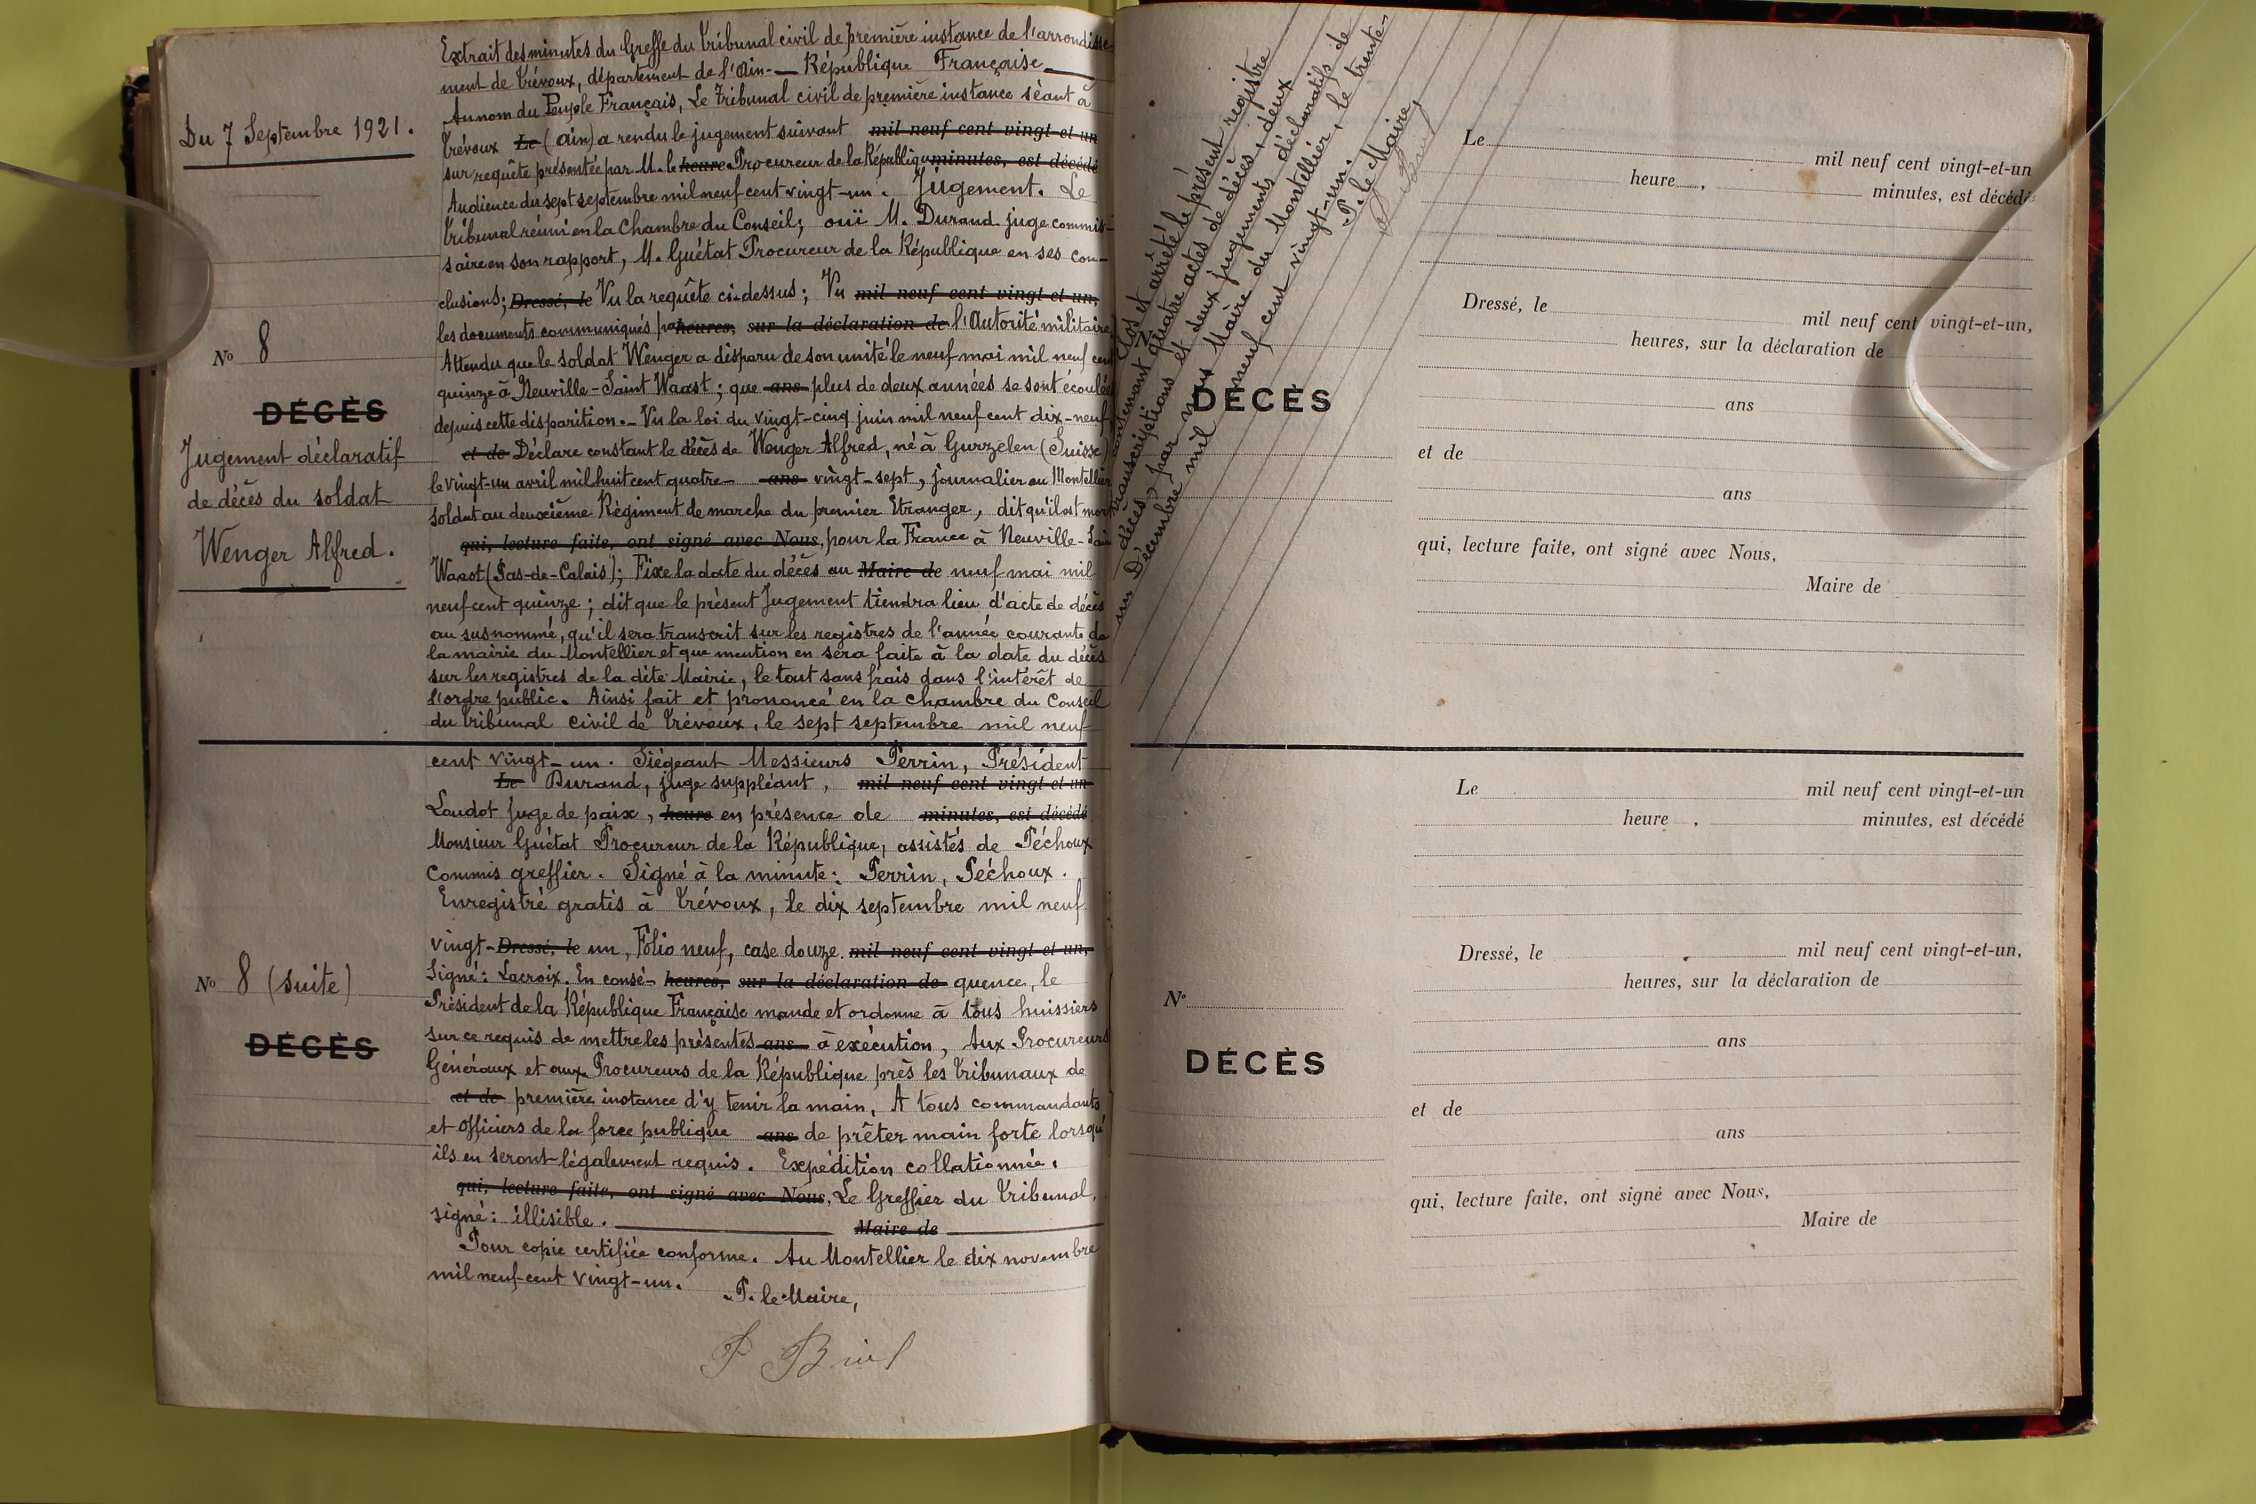 Du 7 Septembre 1921.
N° 8
DÉCÈS
Jugement déclaratif
de décès du soldat
Wenger Alfred.
Extrait des minutes du Greffe du Tribunal civil de première instance de l'arrondisse-
ment de Trévoux, département de l'Ain. — République Française —
Au nom du Peuple Français, Le Tribunal civil de première instance séant à
Trévoux Le (Ain) a rendu le jugement suivant mil neuf cent vingt-et-un
sur requête présentée par M. le heure Procureur de la République minutes, est décédé
Audience du sept septembre mil neuf cent vingt-un. Jugement. Le
Tribunal réuni en la Chambre du Conseil; ouï M. Durand juge commis-
saire en son rapport, M. Guétat Procureur de la République en ses con-
clusions; Dressé, le Vu la requête ci-dessus; Vu mil neuf cent vingt-et-un,
les documents communiqués par heures, sur la déclaration de l'Autorité militaire
Attendu que le soldat Wenger a disparu de son unité le neuf mai mil neuf cent
quinze à Neuville-Saint Waast; que ans plus de deux années se sont écoulées
depuis cette disparition. — Vu la loi du vingt-cinq juin mil neuf cent dix-neuf
et de Déclare constant le décès de Wenger Alfred, né à Gurzelen (Suisse)
le vingt-un avril mil huit cent quatre- ans vingt-sept, journalier au Montellier
soldat au deuxième Régiment de marche du premier Etranger, dit qu'il est mort
qui, lecture faite, ont signé avec Nous, pour la France à Neuville-Saint
Waast (Pas-de-Calais); Fixe la date du décès au Maire de neuf mai mil
neuf cent quinze; dit que le présent Jugement tiendra lieu d'acte de décès
au susnommé, qu'il sera transcrit sur les registres de l'année courante de
la mairie du Montellier et que mention en sera faite à la date du décès
sur les registres de la dite Mairie, le tout sans frais dans l'intérêt de
l'ordre public. Ainsi fait et prononcé en la chambre du Conseil
du Tribunal civil de Trévoux, le sept septembre mil neuf
cent vingt-un. Siégeant Messieurs Perrin, Président
Le Durand, juge suppléant, mil neuf cent vingt-et-un
Loudot Juge de paix, heure en présence de minutes, est décédé
Monsieur Guétat Procureur de la République, assistés de Péchoux
Commis greffier. Signé à la minute: Perrin, Péchoux.
Enregistré gratis à Trévoux, le dix septembre mil neuf
N° 8 (suite)
DÉCÈS
vingt- Dressé, le un, Folio neuf, case douze. mil neuf cent vingt-et-un,
Signé: Lacroix. En consé- heures, sur la déclaration de quence, le
Président de la République Française mande et ordonne à tous huissiers
sur ce requis de mettre les présentes ans à exécution, Aux Procureurs
Généraux et aux Procureurs de la République près les Tribunaux de
et de première instance d'y tenir la main, A tous commandants
et officiers de la force publique ans de prêter main forte lorsqu'
ils en seront légalement requis. Expédition collationnée.
qui, lecture faite, ont signé avec Nous, Le Greffier du Tribunal,
signé: illisible. Maire de
Pour copie certifiée conforme. Au Montellier le dix novembre
mil neuf cent vingt-un.
P. le Maire,
Clos et arrêté le présent registre
contenant quatre actes de décès, deux
transcriptions et deux jugements déclaratifs de
décès, par nous Maire du Montellier, le trente-
un Décembre mil neuf cent vingt-un.
P. le Maire,
DÉCÈS
Le mil neuf cent vingt-et-un
heure , minutes, est décédé
Dressé, le mil neuf cent vingt-et-un,
heures, sur la déclaration de
ans
et de
ans
qui, lecture faite, ont signé avec Nous,
Maire de
N°
DÉCÈS
Le mil neuf cent vingt-et-un
heure , minutes, est décédé
Dressé, le mil neuf cent vingt-et-un,
heures, sur la déclaration de
ans
et de
ans
qui, lecture faite, ont signé avec Nous,
Maire de